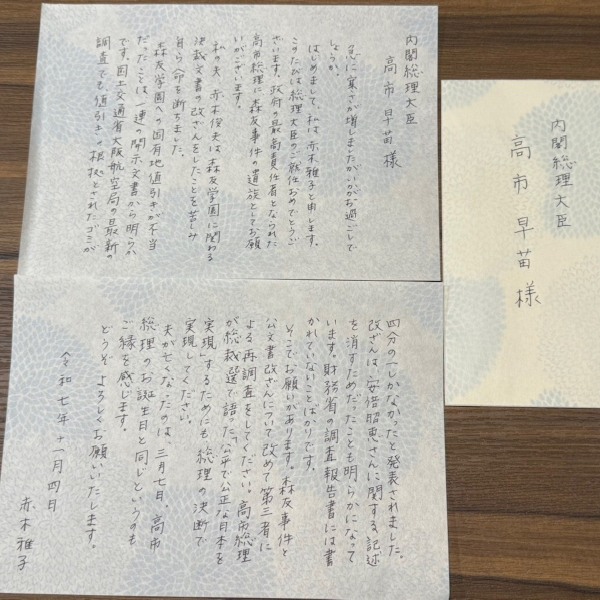 内閣総理大臣
高市早苗様
急に寒さが増しましたがいかがお過ごしで
しょうか。
はじめまして、私は赤木雅子と申します。
このたびは総理大臣のご就任おめでとうご
ざいます。政府の最高責任者となられた
高市総理に森友事件の遺族としてお願
いがございます。
私の夫、赤木俊夫は森友学園に関わる
決裁文書の改ざんをしたことを苦しみ
自ら命を断ちました。
森友学園への国有地値引きが不当
だったことは一連の開示文書から明らか
です。国土交通省大阪航空局の最新の
調査でも値引きの根拠とされたゴミが
四分の一しかなかったと発表されました。
改ざんは、安倍昭恵さんに関する記述
を消すためだったことも明らかになって
います。財務省の調査報告書には書
かれていないことばかりです。
そこでお願いがあります。森友事件と
公文書改ざんについて改めて第三者に
よる再調査をしてください。高市総理
が総裁選で語った「公平で公正な日本を
実現」するためにも、総理の決断で
実現してください。
夫が亡くなったのは、三月七日、高市
総理のお誕生日と同じというのも
ご縁を感じます。
どうぞよろしくお願いいたします。
令和七年十一月四日
赤木雅子
内閣総理大臣
高市早苗様